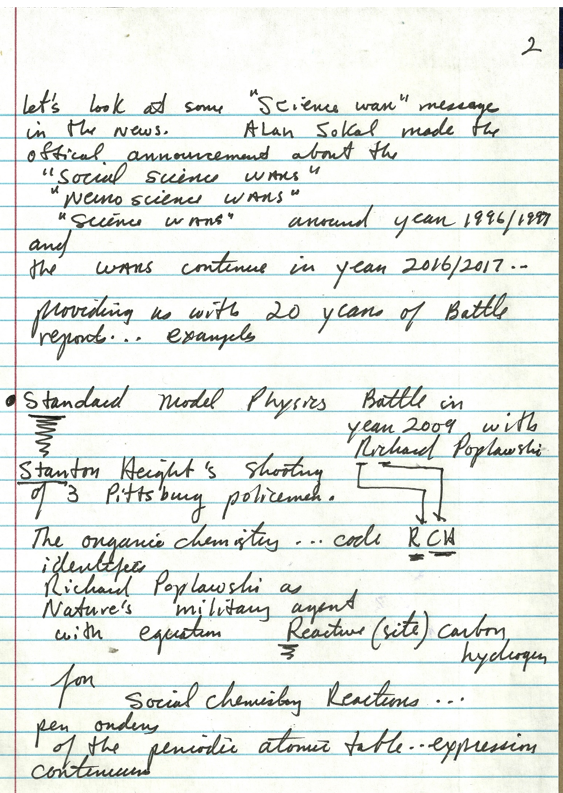 2
Let's look at some "Science war" message
in the News. Alan Sokal made the
offical announcement about the
"Social Science WARS"
"Neuro science WARS"
"Science WARS" around year 1996/1997
and
the WARS continue in year 2016/2017...
providing us with 20 years of Battle
report... examples
• Standard Model Physics Battle in
year 2009 with
Richard Poplawski
Stanton Height's Shooting
of 3 Pittsburg policemen.
The organic chemistry ... code R CH
identifies
Richard Poplawski as
Nature's military agent
with equation Reactive (site) carbon
hydrogen
for
Social chemistry Reactions ...
per orders
of the periodic atomic table...expression
continuum